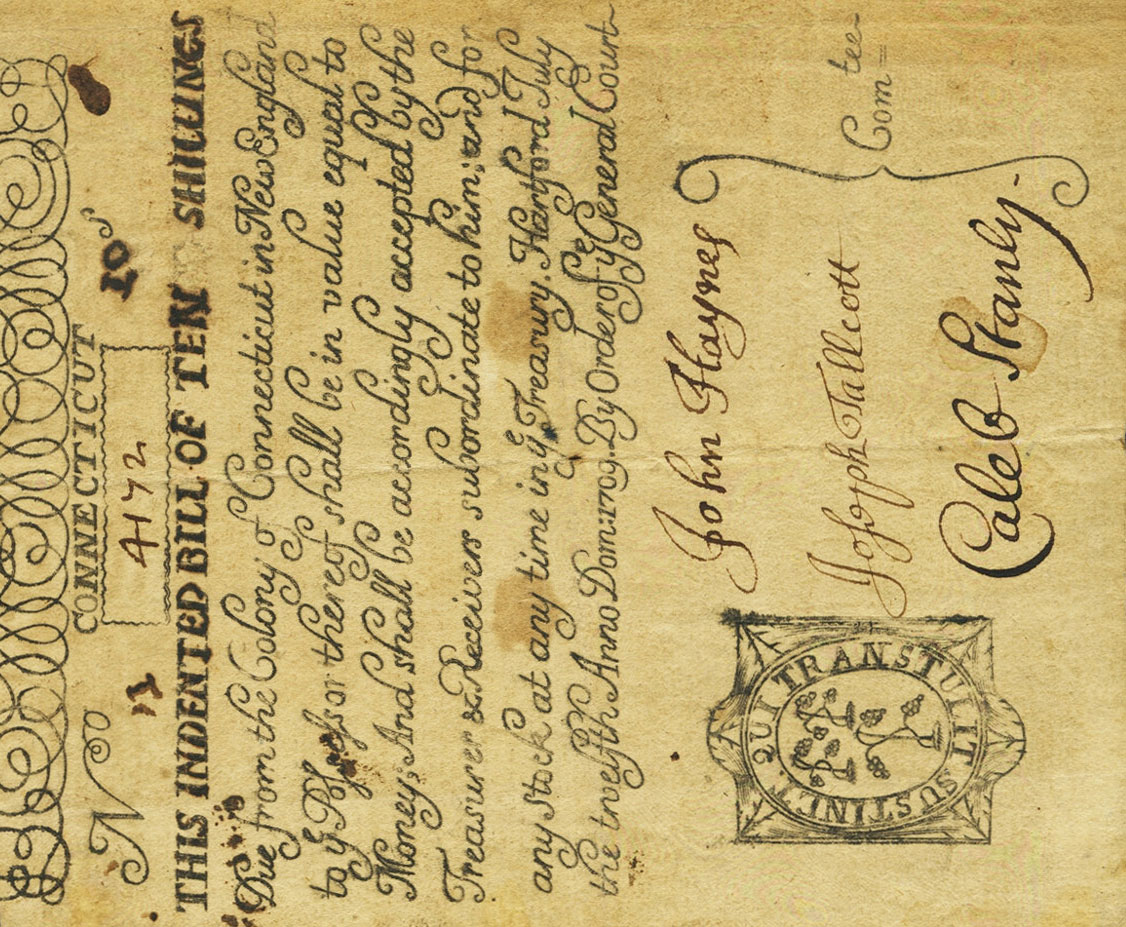 CONNECTICUT
No 4172 10s
THIS INDENTED BILL OF TEN SHILLINGS
Due from the Colony of Connecticut in New England
to ye Possessor thereof shall be in value equal to
Money; And shall be accordingly accepted by the
Treasurer & Receivers subordinate to him; and for
any Stock at any time in ye Treasury. Hartford July
the twelfth Anno Dom: 1709. By Order of ye General Court
John Haynes
Joseph Tallcott
Caleb Stanly.
Comtee
QUI TRANSTULIT SUSTINET